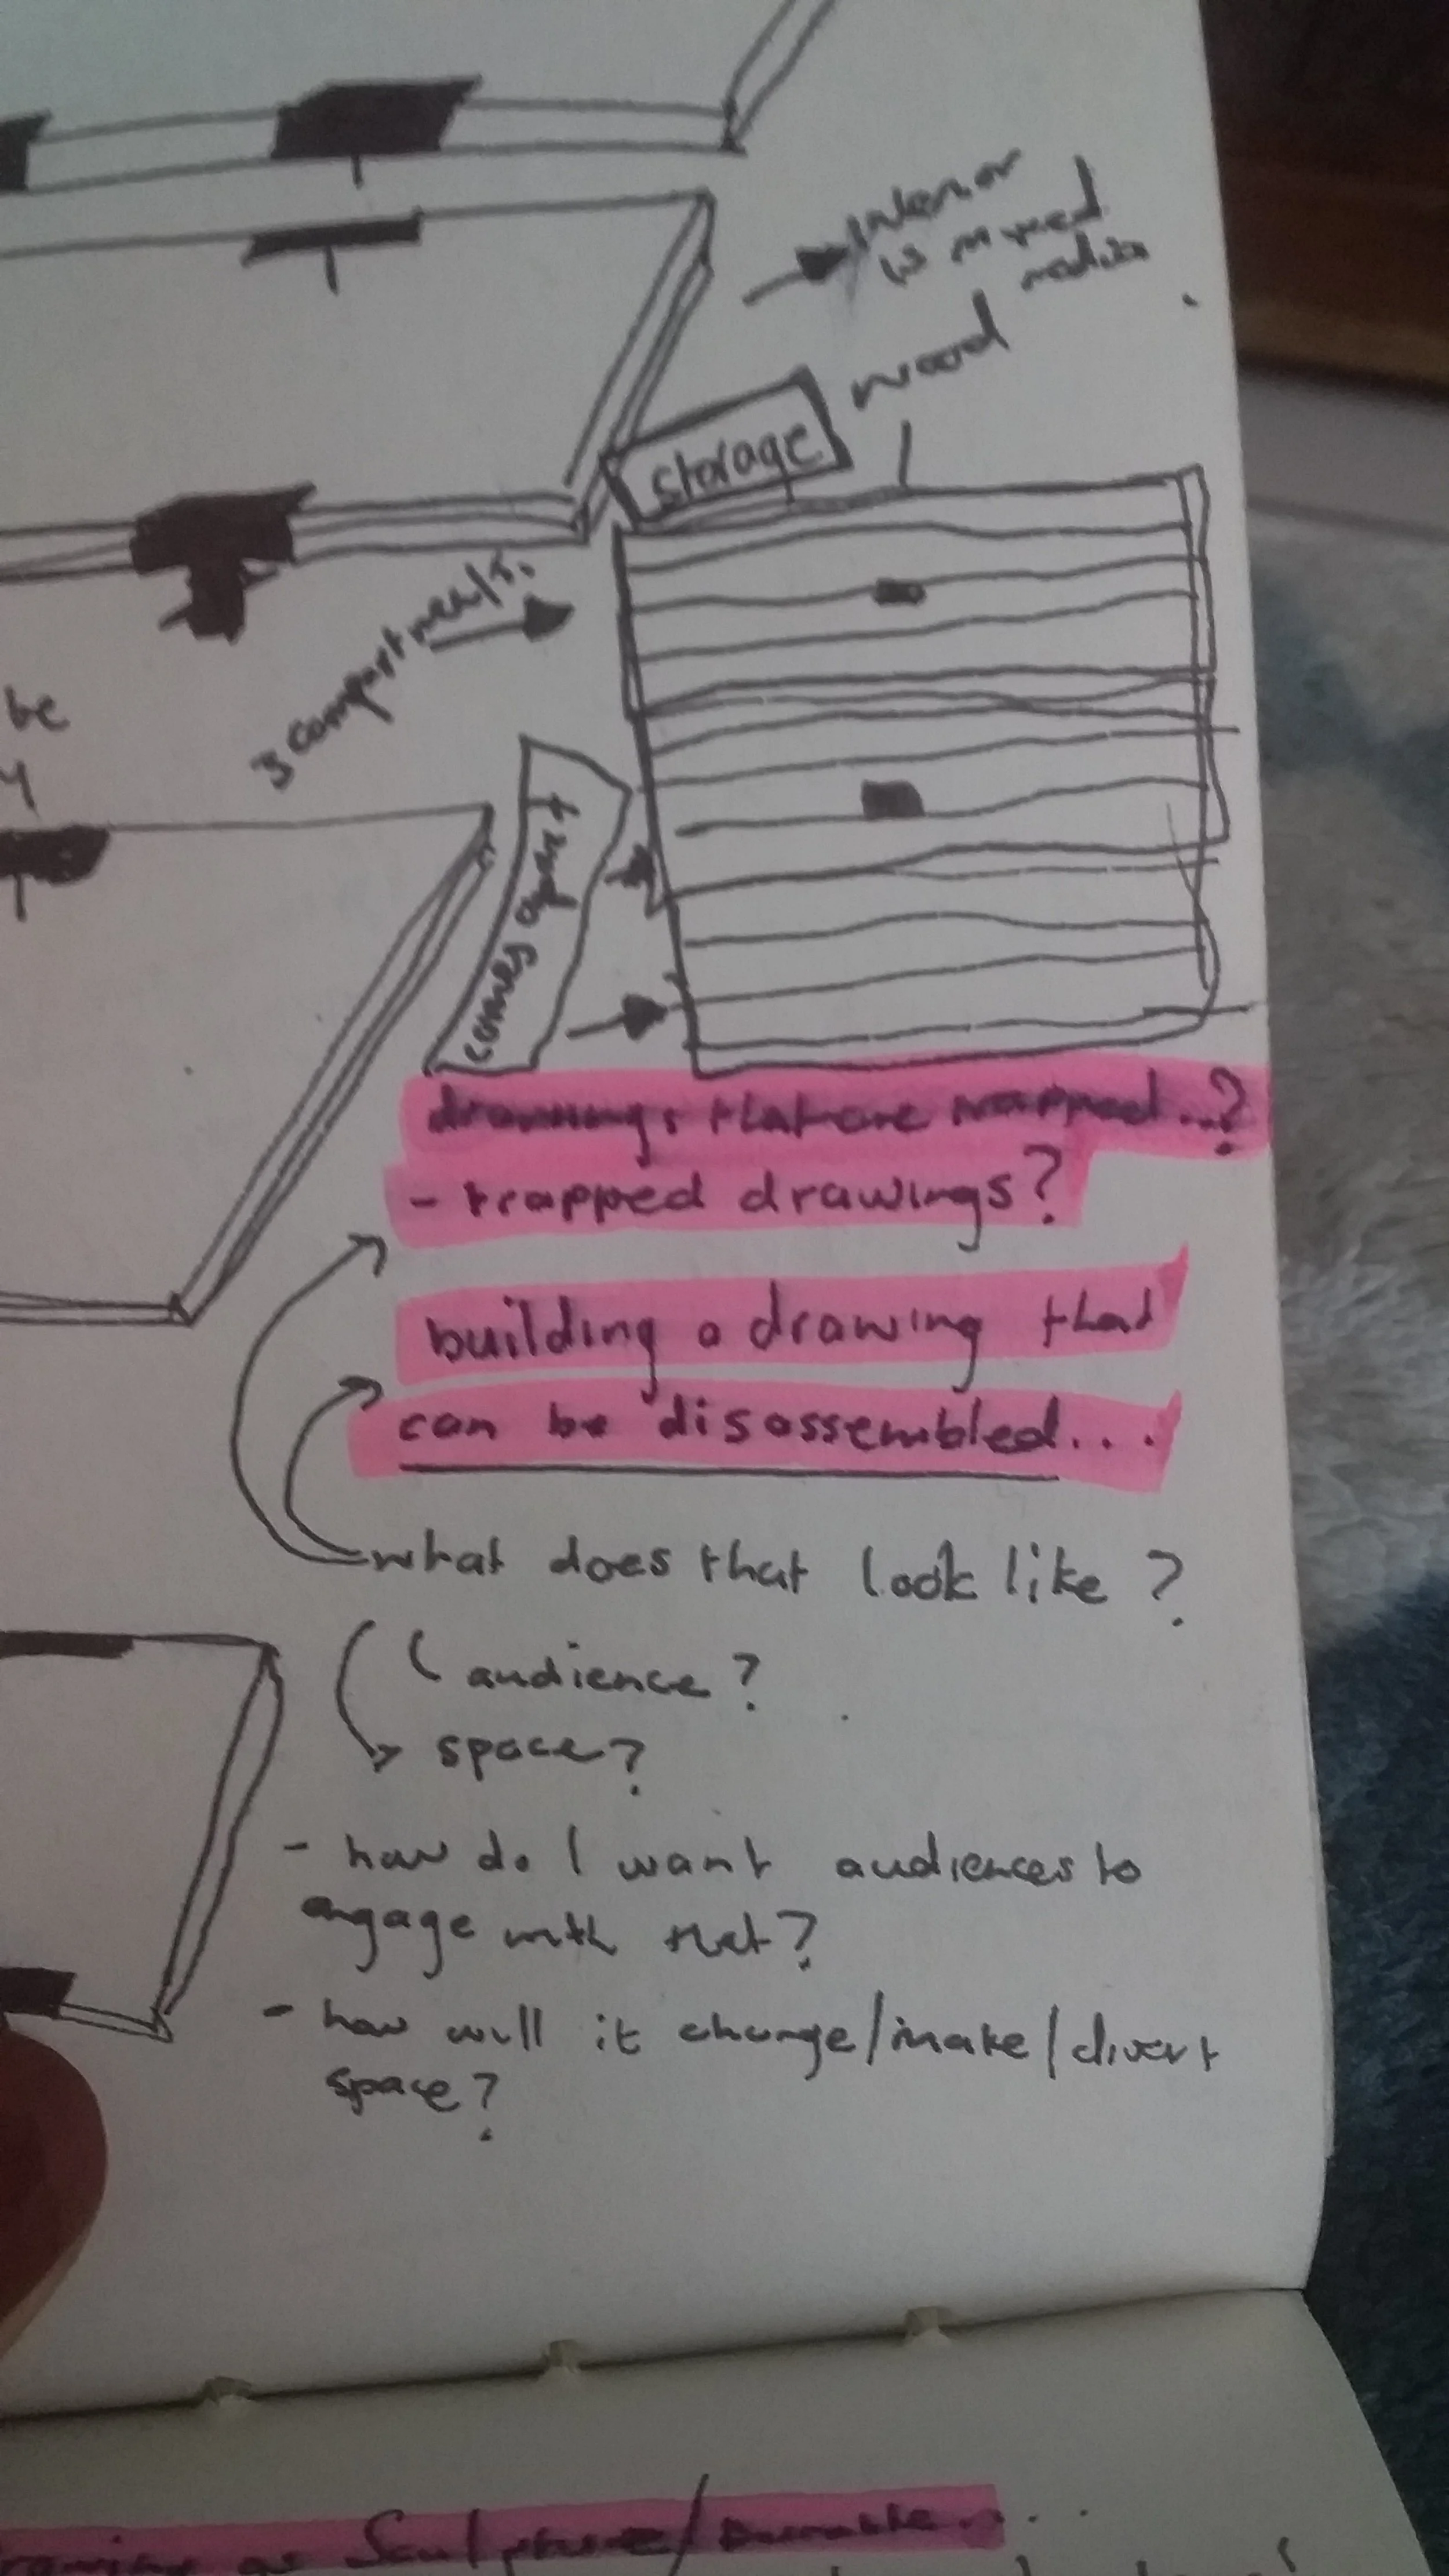 Interior
is mixed
media
wood
storage
3 compartments.
be
y
comes apart
drawings that are trapped...?
- trapped drawings?
building a drawing that
can be disassembled...
what does that look like?
( audience?
space?
- how do I want audiences to
engage with that?
- how will it change/make/divert
space?
as Sculpture/